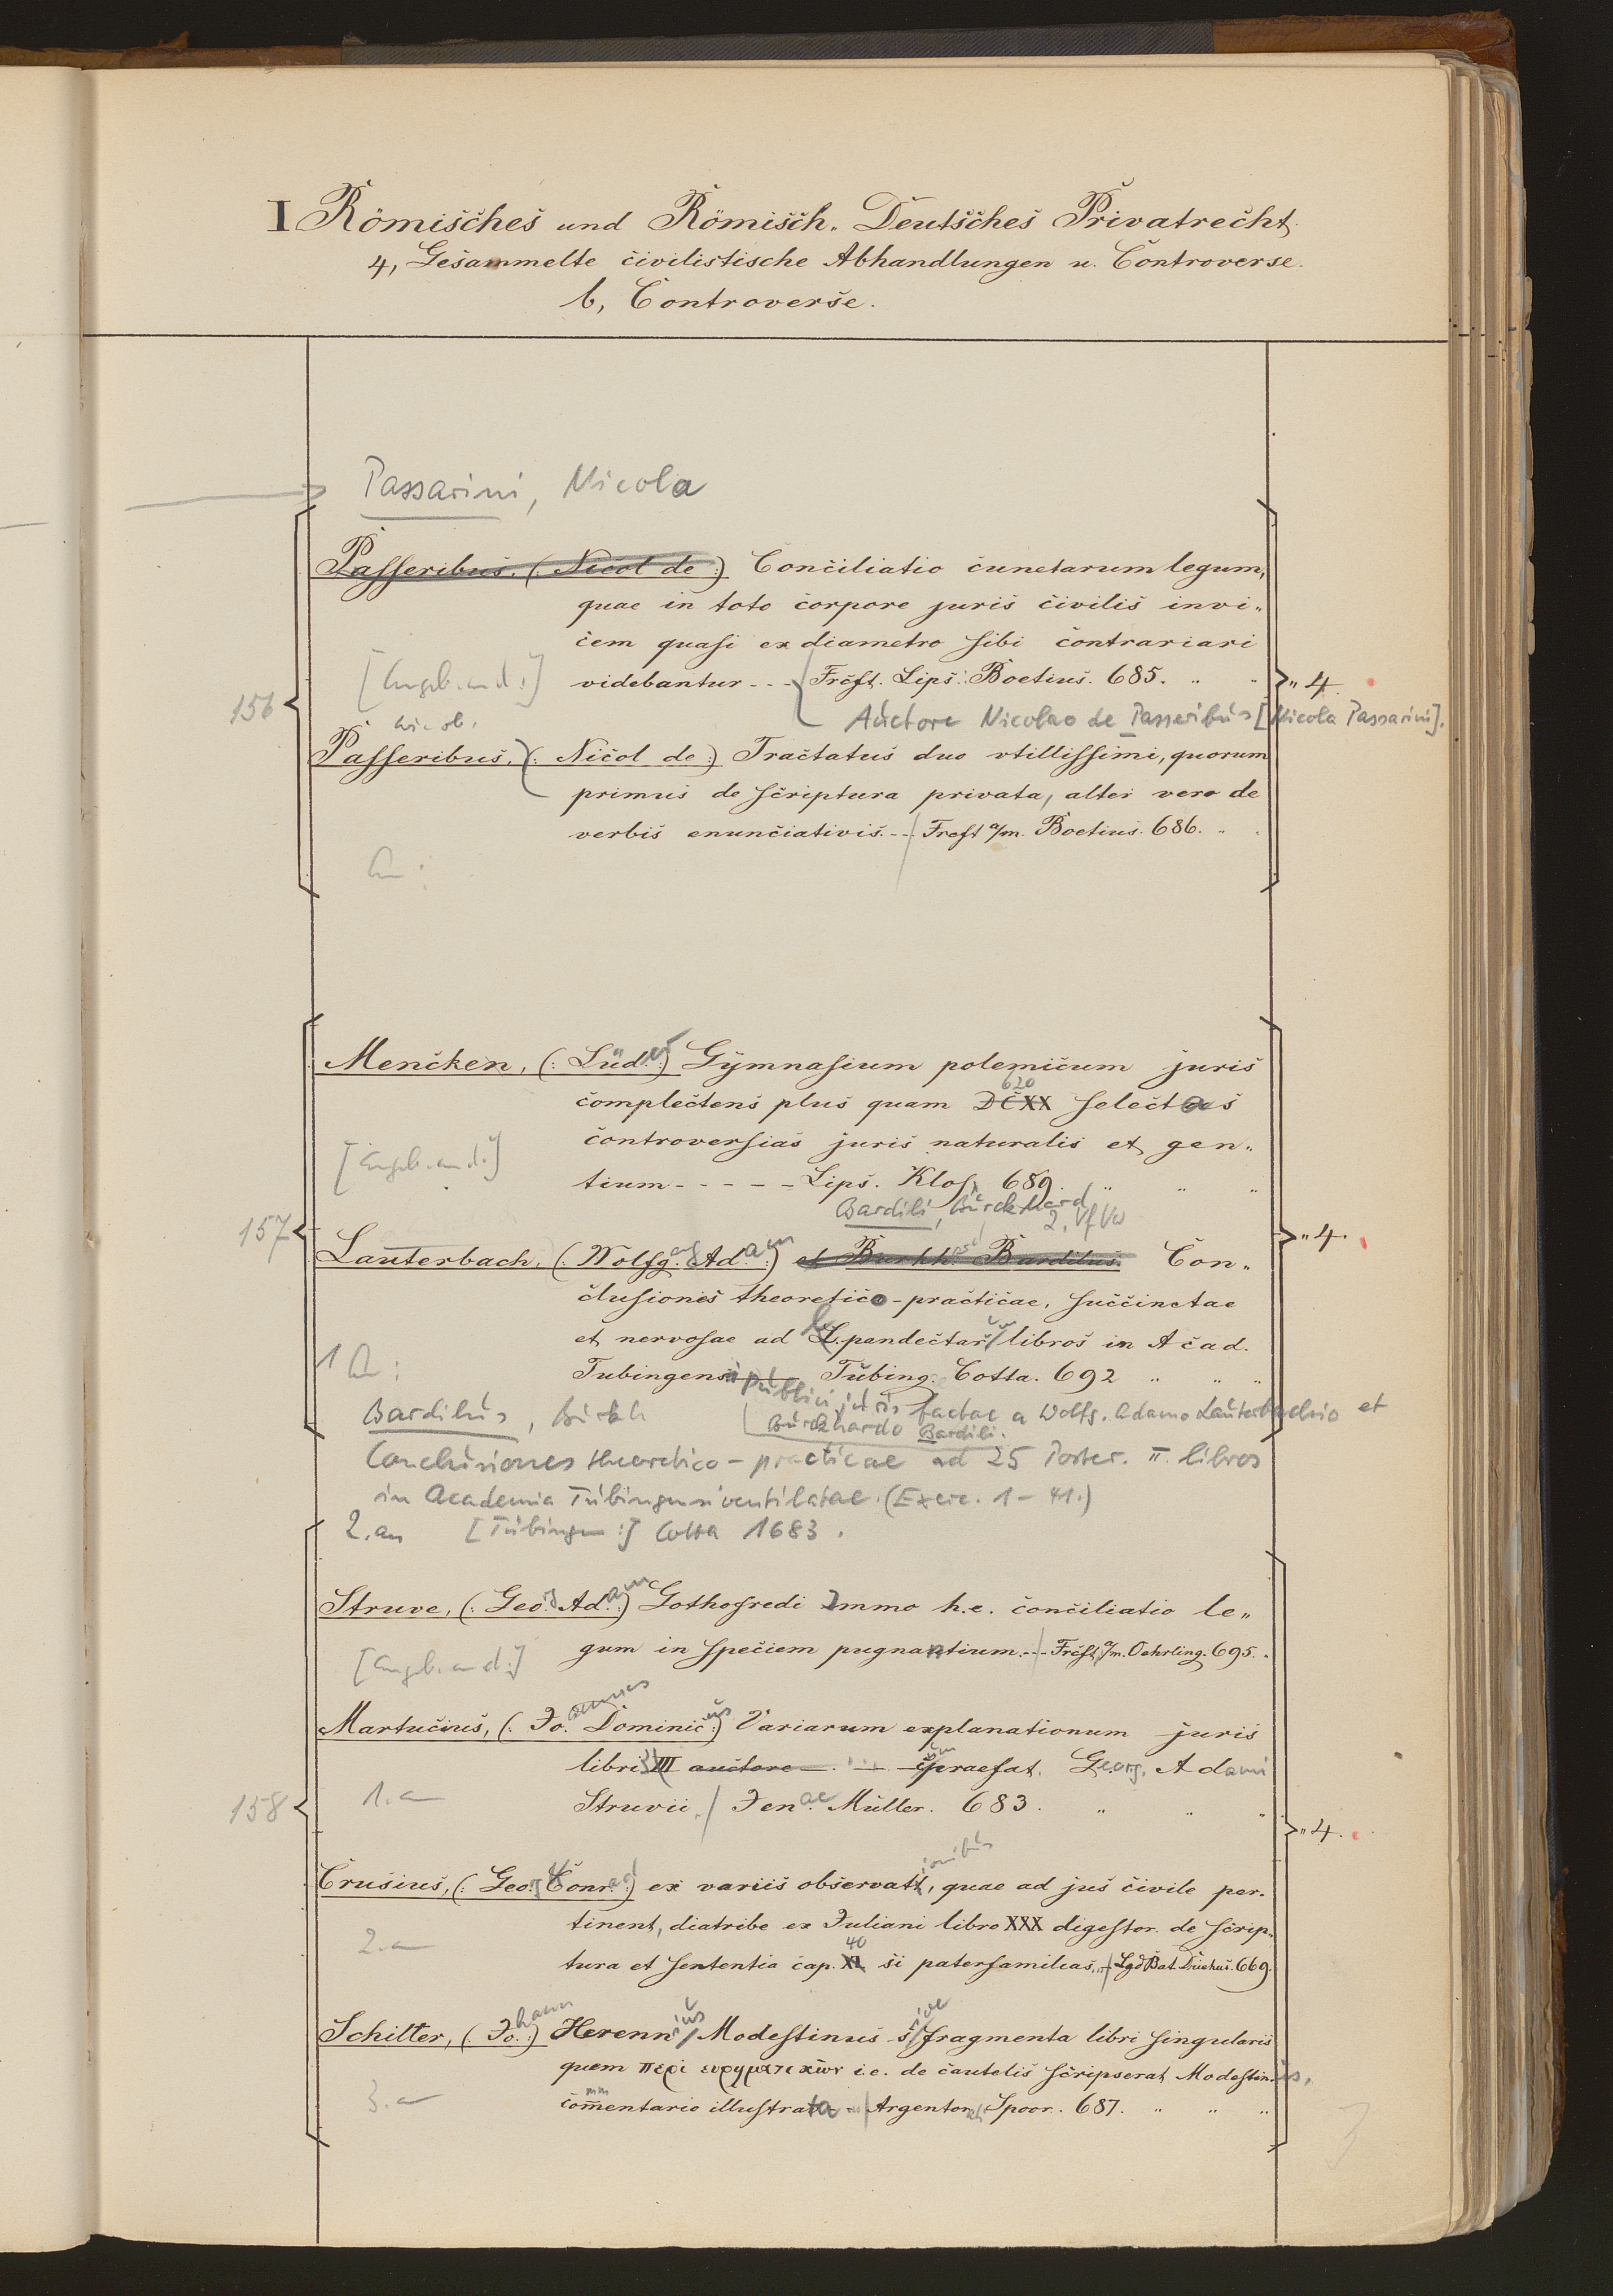 I Römisches und Römisch-Deutsches Privatrecht.
4, Gesammelte civilistische Abhandlungen u. Controverse.
b, Controverse.
Passarini, Nicola
Passeribus, (: Nicol de :) Conciliatio cunctarum legum,
quae in toto corpore juris civilis invi-
cem quasi ex diametro sibi contrariari
[Angeb. an d.:] videbantur - - - Frcft. Lips. Boetius. 685. " " " 4.
156
Auctore Nicolao de Passeribus [Nicola Passarini].
Passeribus, (: Nicol de :) Tractatus duo utillissimi, quorum
primus de scriptura privata, alter vero de
verbis enunciativis. - - Frcft a/m. Boetius. 686. " "
An:
Mencken, (: Lüder :) Gymnasium polemicum juris
620
complectens plus quam DCXX selectas
controversias juris naturalis et gen-
[Angeb. an d.:]
tium - - - - - Lips. Klos. 689. " " "
Bardili, Burckhard
2. Vf Vw
157 " 4.
Lauterbach, (: Wolfgang Adam :) et Burkh. Bardilus. Con-
clusiones theoretico-practicae, succinctae
et nervosae ad L. pandectarum libros in Acad.
1 An:
Tubingensi Tübing. Cotta. 692 " " "
publici juris factae a Wolfg. Adamo Lauterbachio et
Burckhardo Bardili.
Bardilus, Burkh
Conclusiones theoretico-practicae ad 25 Poster. π. libros
in Academia Tubingensi ventilatae. (Exerc. 1-41.)
2. an [Tübingen:] Cotta 1683.
Struve, (: Georg Adam :) Gothofredi Immo h.e. conciliatio le-
gum in speciem pugnantium. - - Frcft a/m. Oehrling. 695.
[Angeb. an d.:]
Martucius, (: Joannes Dominicus :) Variarum explanationum juris
libri III auctore cum praefat. Georg. Adami
1. an
Struvii. Jenae Müller. 683. " " "
158 " 4.
Crusius, (: Georg Conrad :) ex variis observationibus, quae ad jus civile per-
tinent, diatribe ex Juliani libro XXX digestor. de scrip-
2. an
40
tura et sententia cap. XL si paterfamilias. - Lgd Bat. 669.
Schilter, (: Johann :) Herennius Modestinus sive fragmenta libri singularis
quem περι ευρηματικων i.e. de cautelis scripserat Modestinus,
3. an
commentario illustrata - Argentorati Spoor. 687. " " "